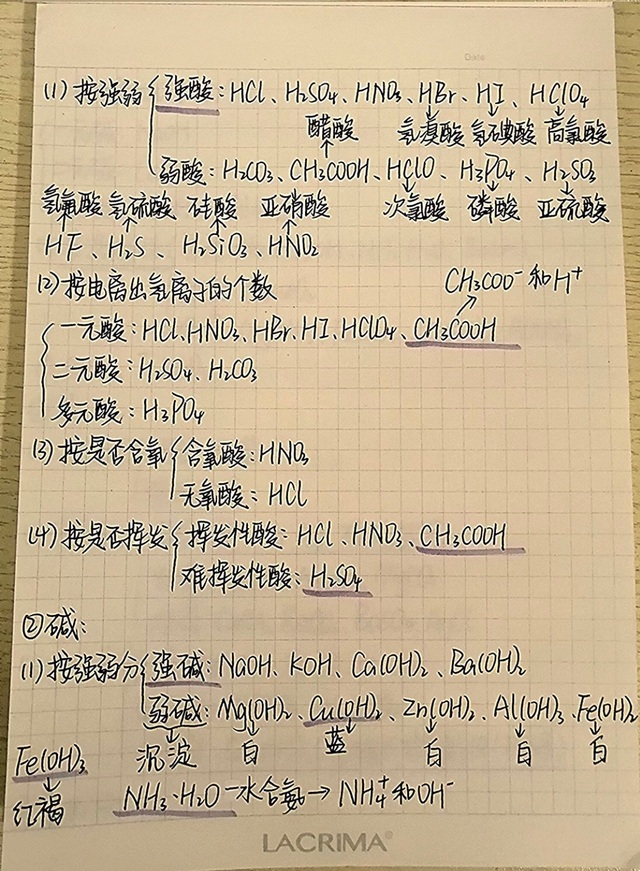 Date
(1) 按强弱 强酸：HCl、H₂SO₄、HNO₃、HBr、HI、HClO₄
醋酸 氢溴酸 氢碘酸 高氯酸
弱酸：H₂CO₃、CH₃COOH、HClO、H₃PO₄、H₂SO₃
氢氟酸 氢硫酸 硅酸 亚硝酸 次氯酸 磷酸 亚硫酸
HF、H₂S、H₂SiO₃、HNO₂
(2) 按电离出氢离子的个数
CH₃COO⁻和H⁺
一元酸：HCl、HNO₃、HBr、HI、HClO₄、CH₃COOH
二元酸：H₂SO₄、H₂CO₃
多元酸：H₃PO₄
(3) 按是否含氧 含氧酸：HNO₃
无氧酸：HCl
(4) 按是否挥发 挥发性酸：HCl、HNO₃、CH₃COOH
难挥发性酸：H₂SO₄
②碱：
(1) 按强弱分 强碱：NaOH、KOH、Ca(OH)₂、Ba(OH)₂
弱碱：Mg(OH)₂、Cu(OH)₂、Zn(OH)₂、Al(OH)₃、Fe(OH)₂
沉淀 白 蓝 白 白 白
Fe(OH)₃
红褐
NH₃·H₂O 一水合氨→NH₄⁺和OH⁻
LACRIMA®